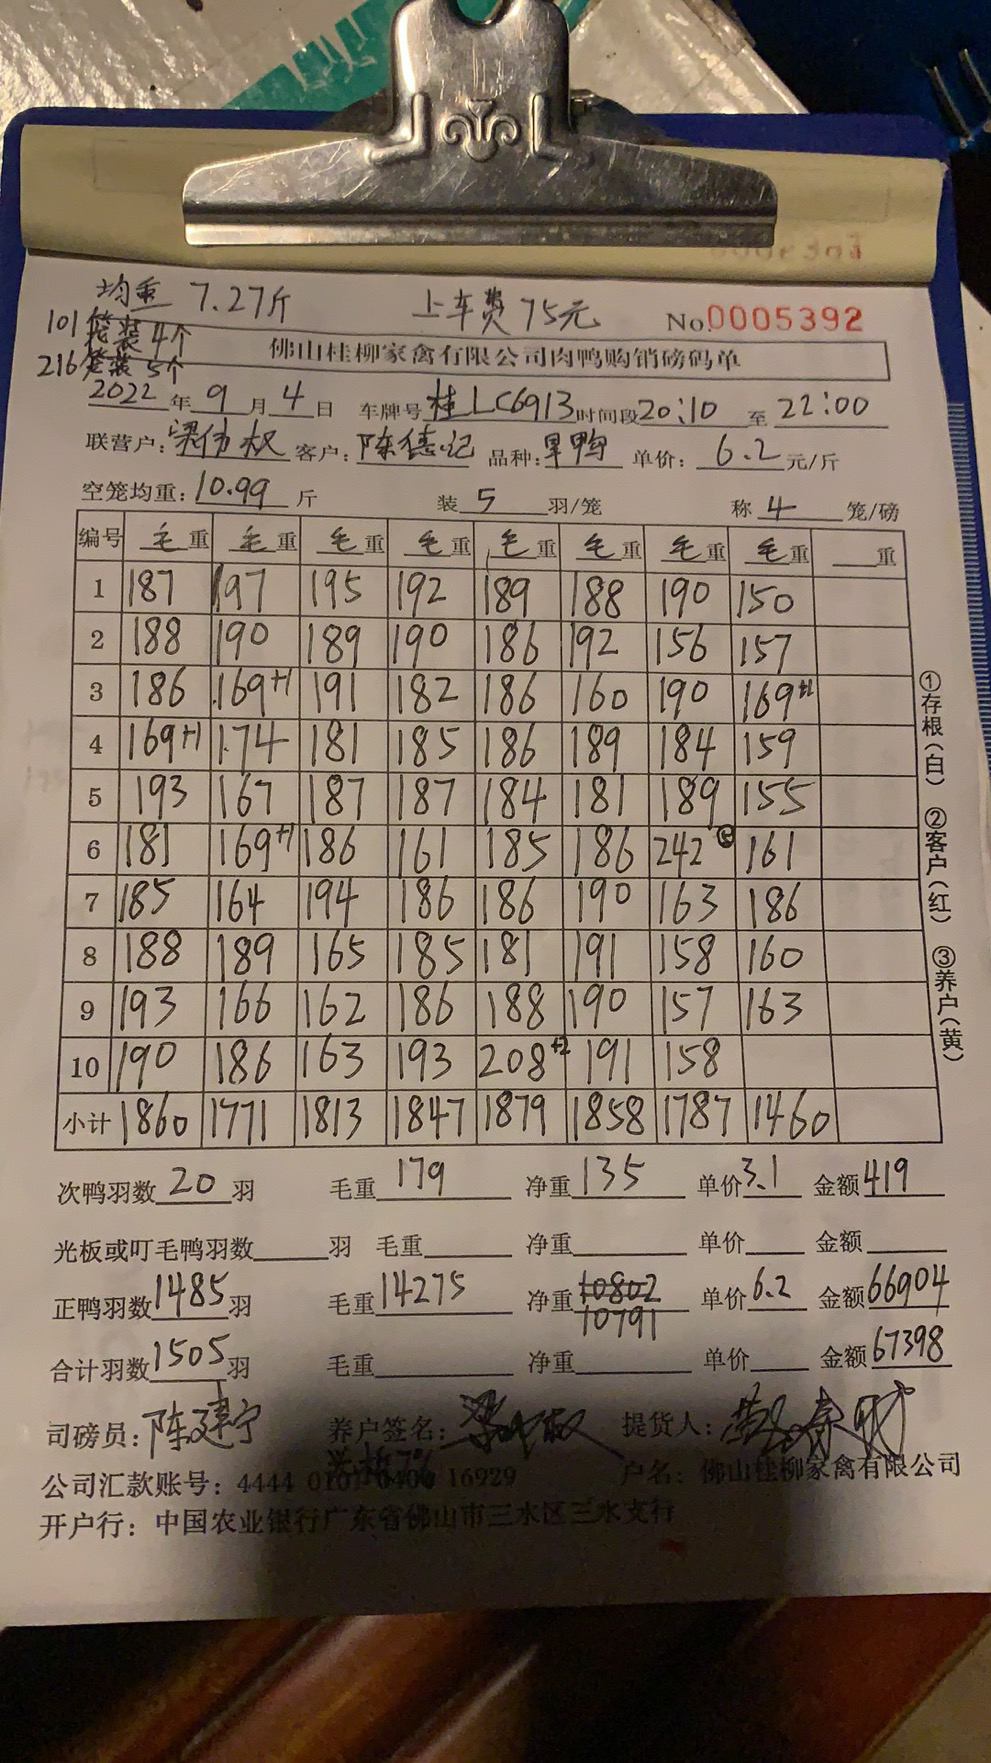 均重 7.27斤 上车费75元 No.0005392
101笼装4个
216笼装5个
佛山桂柳家禽有限公司肉鸭购销磅码单
2022年9月4日 车牌号桂LC6913时间段20:10至22:00
联营户:梁伟权 客户:陈德记 品种:旱鸭 单价:6.2元/斤
空笼均重:10.99斤 装5羽/笼 称4笼/磅
编号 毛重 毛重 毛重 毛重 毛重 毛重 毛重 毛重 重
1 187 197 195 192 189 188 190 150
2 188 190 189 190 186 192 156 157
3 186 169+1 191 182 186 160 190 169
4 169+1 174 181 185 186 189 184 159
5 193 167 187 187 184 181 189 155
6 181 169+1 186 161 185 186 242 161
7 185 164 194 186 186 190 163 186
8 188 189 165 185 181 191 158 160
9 193 166 162 186 188 190 157 163
10 190 186 163 193 208+2 191 158
小计 1860 1771 1813 1847 1879 1858 1787 1460
次鸭羽数20羽 毛重179 净重135 单价3.1 金额419
光板或叮毛鸭羽数 羽 毛重 净重 单价 金额
正鸭羽数1485羽 毛重14275 净重10802 单价6.2 金额66904
10791
合计羽数1505羽 毛重 净重 单价 金额67398
司磅员:陈建宁 养户签名: 提货人:
公司汇款账号:4444 0101 0400 16929 户名:佛山桂柳家禽有限公司
开户行:中国农业银行广东省佛山市三水区三水支行
①存根(白) ②客户(红) ③养户(黄)